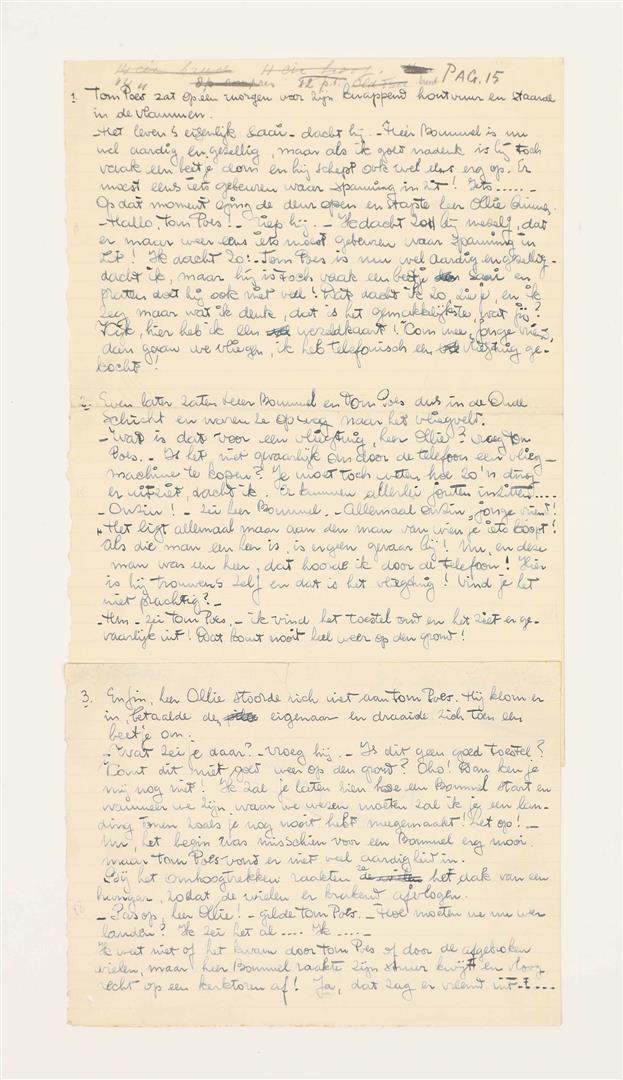 PAG. 15
1. Tom Poes zat op een morgen voor zijn knappend houtvuur en staarde
in de vlammen.
- Het leven is eigenlijk saai - dacht hij. - Heer Bommel is nu
wel aardig en gezellig, maar als ik goed nadenk is hij toch
vaak een beetje dom en hij schept ook wel eens erg op. Er
moest eens iets gebeuren waar spanning in zit! Iets..... -
Op dat moment ging de deur open en stapte heer Ollie binnen.
- Hallo, Tom Poes! - riep hij. - Ik dacht zo bij mezelf, dat
er maar weer eens iets moest gebeuren waar spanning in
zit! Ik dacht zo: - Tom Poes is nu wel aardig en gezellig -
dacht ik, maar hij is toch vaak een beetje saai en
praten doet hij ook niet veel! Dat dacht ik zo, zie je, en ik
zeg maar wat ik denk, dat is het gemakkelijkste, wat jij?
Kijk, hier heb ik een wereldkaart! Kom mee, jonge vriend,
dan gaan we vliegen, ik heb telefonisch een vliegtuig ge-
kocht!
2. Even later zaten heer Bommel en Tom Poes dus in de Oude
Schicht en waren ze op weg naar het vliegvelt.
- Wat is dat voor een vliegtuig, heer Ollie? vroeg Tom
Poes. - Is het niet gevaarlijk om door de telefoon een vlieg-
machine te kopen? Je moet toch weten hoe zo'n ding
er uitziet, dacht ik. Er kunnen allerlei fouten inzitten....
- Onzin! - zei heer Bommel. - Allemaal onzin, jonge vriend!
Het ligt allemaal maar aan den man van wien je iets koopt!
Als die man een heer is, is er geen gevaar bij! Nu, en deze
man was een heer, dat hoorde ik door de telefoon! Hier
is hij trouwens zelf en dat is het vliegtuig! Vind je het
niet prachtig? -
- Hm - zei Tom Poes, - ik vind het toestel oud en het ziet er ge-
vaarlijk uit! Dat komt nooit heel weer op den grond!
3. Enfin, heer Ollie stoorde zich niet aan Tom Poes. Hij klom er
in, betaalde den eigenaar en draaide zich toen een
beetje om.
- Wat zei je daar? - vroeg hij. - Is dit geen goed toestel?
Komt dit niet goed weer op den grond? Oho! Dan ken je
mij nog niet! Ik zal je laten zien hoe een Bommel start en
wanneer we zijn waar we wezen moeten zal ik je een lan-
ding tonen zoals je nog nooit hebt meegemaakt! Let op! -
Nu, het begin was misschien voor een Bommel erg mooi,
maar Tom Poes vond er niet veel aardigheid in.
Bij het omhoogtrekken raakten de het dak van een
hangar, zodat de wielen er krakend afvlogen.
- Pas op, heer Ollie! - gilde Tom Poes. - Hoe moeten we nu weer
landen? Ik zei het al.... Ik.... -
Ik weet niet of het kwam door Tom Poes of door de afgebroken
wielen, maar heer Bommel raakte zijn stuur kwijt en vloog
recht op een kerktoren af! Ja, dat zag er vreemd uit....